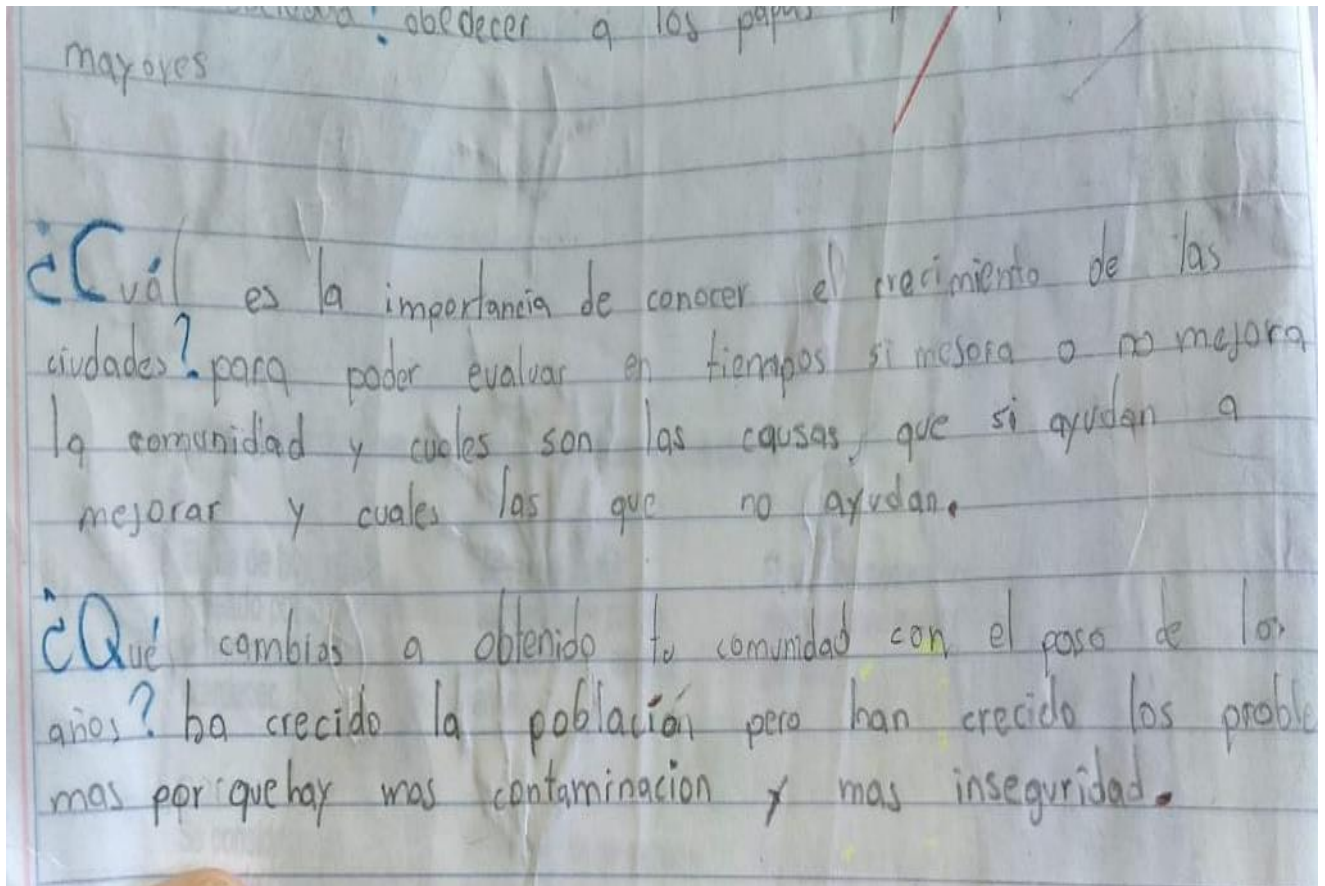 obedecer a los papas
mayores
¿Cuál es la importancia de conocer el crecimiento de las
ciudades? para poder evaluar en tiempos si mejora o no mejora
la comunidad y cuales son las causas, que si ayudan a
mejorar y cuales las que no ayudan.
¿Qué cambios a obtenido tu comunidad con el paso de los
años? ha crecido la población pero han crecido los proble
mas por que hay mas contaminacion y mas inseguridad.